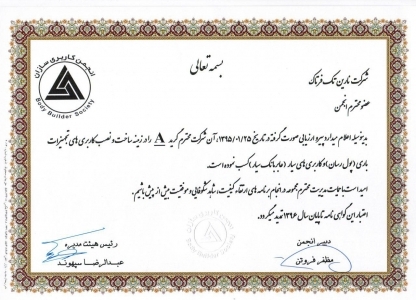 بسمه تعالی
انجمن کاربری سازان
Body Builder Society
شرکت نارین تک فرتاک
عضو محترم انجمن
بدینوسیله اعلام میدارد پیرو ارزیابی صورت گرفته در تاریخ ۱۳۹۵/۰۱/۲۵ آن شرکت محترم گرید A را در زمینه ساخت و نصب کاربری های تجهیزات
باری (پول رسان) و کاربری های سیار (عابر بانک سیار) کسب نموده است.
امید است با حمایت مدیریت محترم مجموعه در انجام برنامه های ارتقاء کیفیت، شاهد شکوفایی و موفقیت بیش از پیش باشیم.
اعتبار این گواهی نامه تا پایان سال ۱۳۹۶ تمدید میگردد.
دبیر انجمن
مظفر فروتن
رئیس هیئت مدیره
عبدالرضا سپهوند